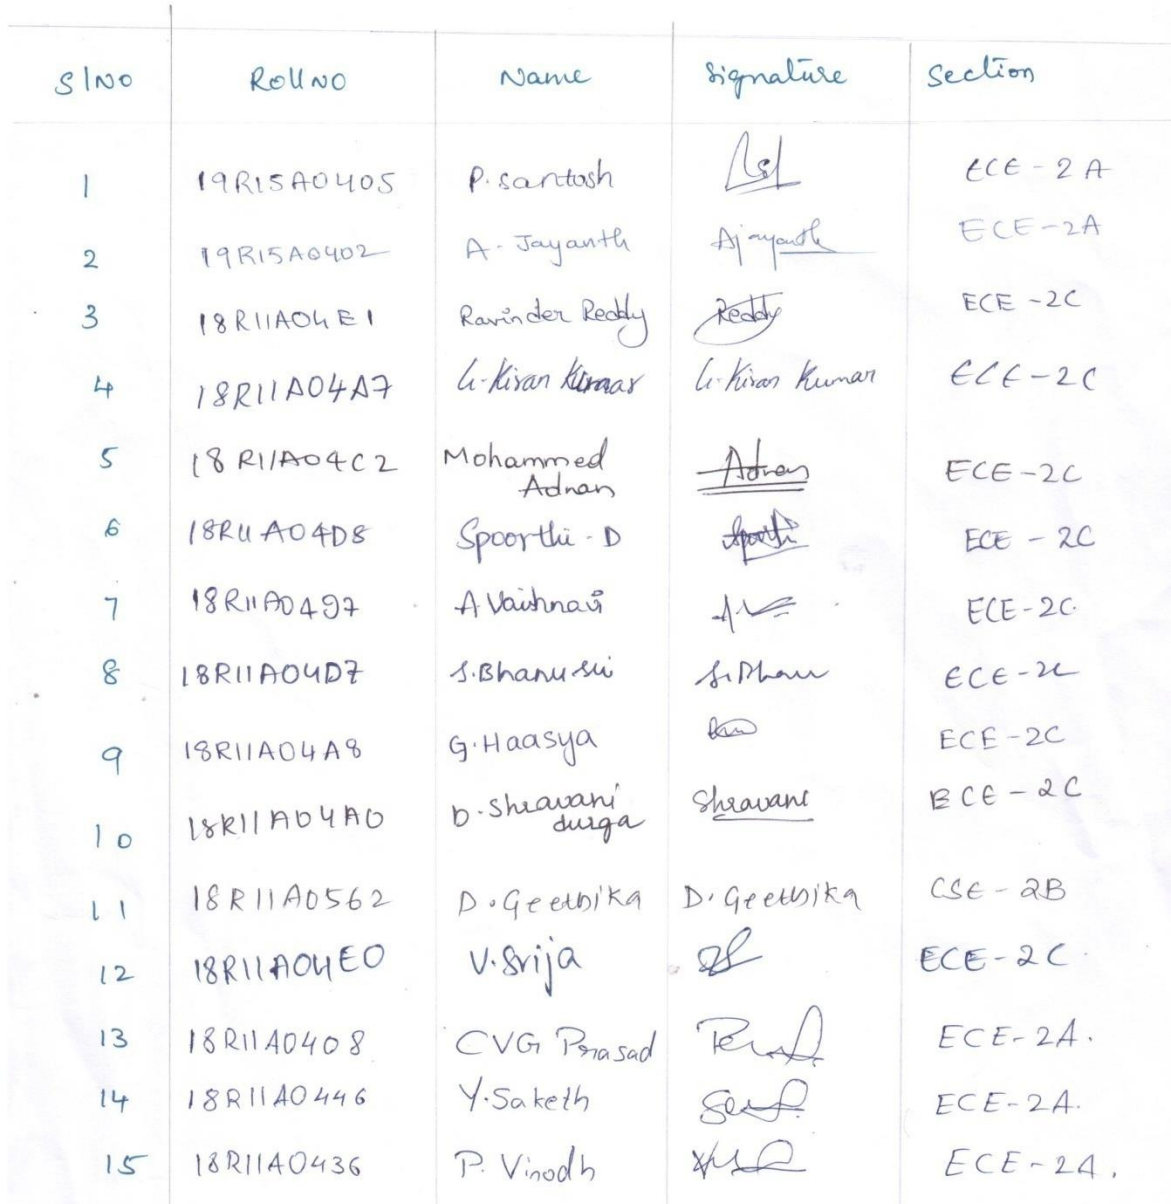 SlNo RollNo Name Signature Section
1 19R15A0405 P. Santosh ECE - 2A
2 19R15A0402 A. Jayanth Ajayanth ECE-2A
3 18R11A04E1 Ravinder Reddy Reddy ECE -2C
4 18R11A04A7 G. Kiran Kumar G. Kiran Kumar ECE-2C
5 18R11A04C2 Mohammed Adnan Adnan ECE-2C
6 18R11A04D8 Spoorthi - D Spoorthi ECE - 2C
7 18R11A0497 A Vaishnavi ECE-2C.
8 18R11A04D7 S.Bhanu Sri S. Bhanu ECE-2C
9 18R11A04A8 G. Haasya ECE-2C
10 18R11A04A0 D. Shravani durga Shravani ECE - 2C
11 18R11A0562 D. Geethika D. Geethika CSE - 2B
12 18R11A04E0 V. Srija ECE-2C.
13 18R11A0408 CVG Prasad ECE-2A.
14 18R11A0446 Y. Saketh ECE-2A.
15 18R11A0436 P. Vinodh ECE-2A.